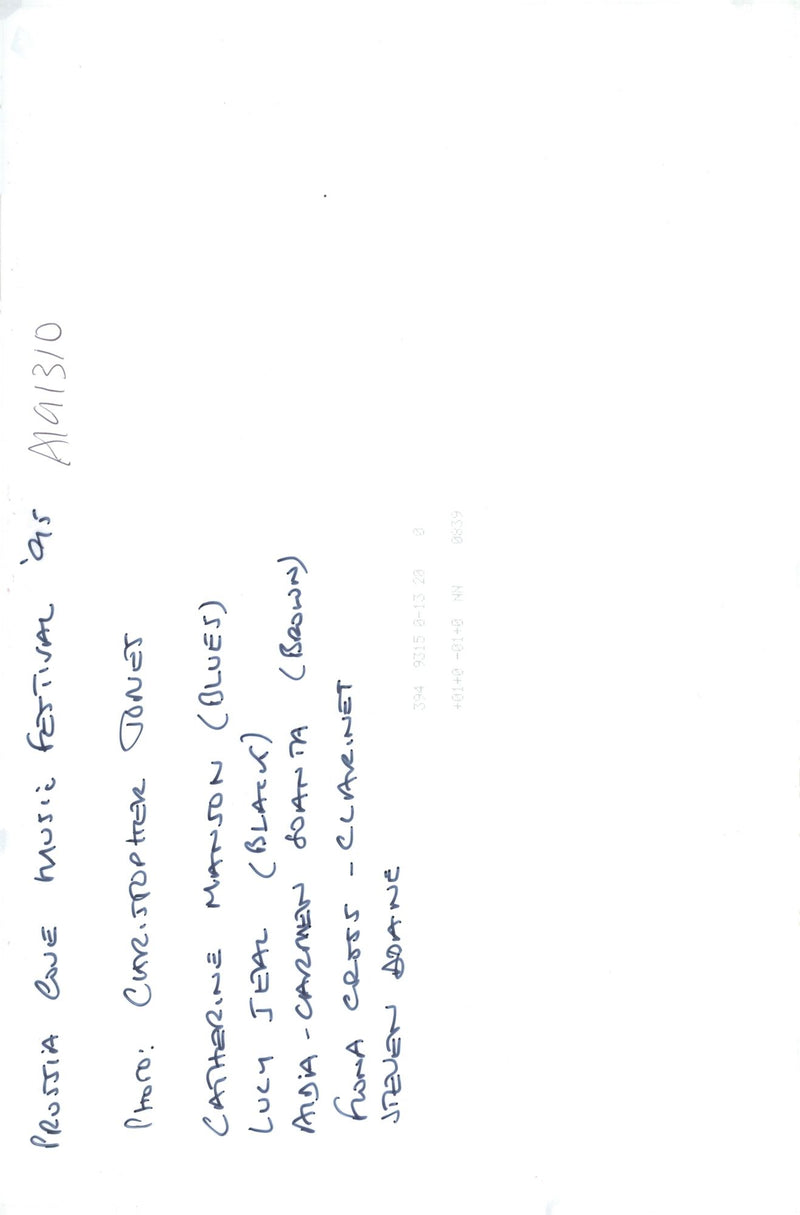 PRUSSIA COVE MUSIC FESTIVAL '95 A191310
PHOTO: CHRISTOPHER JONES
CATHERINE MANSON (BLUES)
LUCY JEAL (BLACK)
AIDA-CARMEN SOANTA (BROWN)
FIONA CROSS - CLARINET
STEVEN DOANE
394 9315 0-13 20 0
+01+0 -01+0 NN 0839